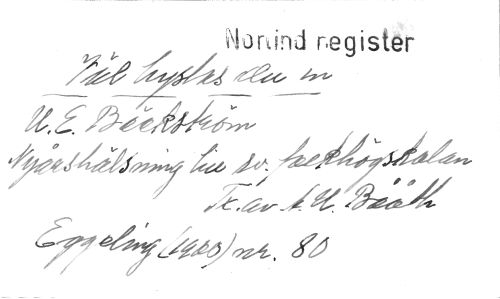 Norlind register
Väl hystas du in
U. E. Bäckström
Nyårshälsning till sv. folkhögskolan
Tx. av A. U. Bååth
Eggeling (1900) nr. 80